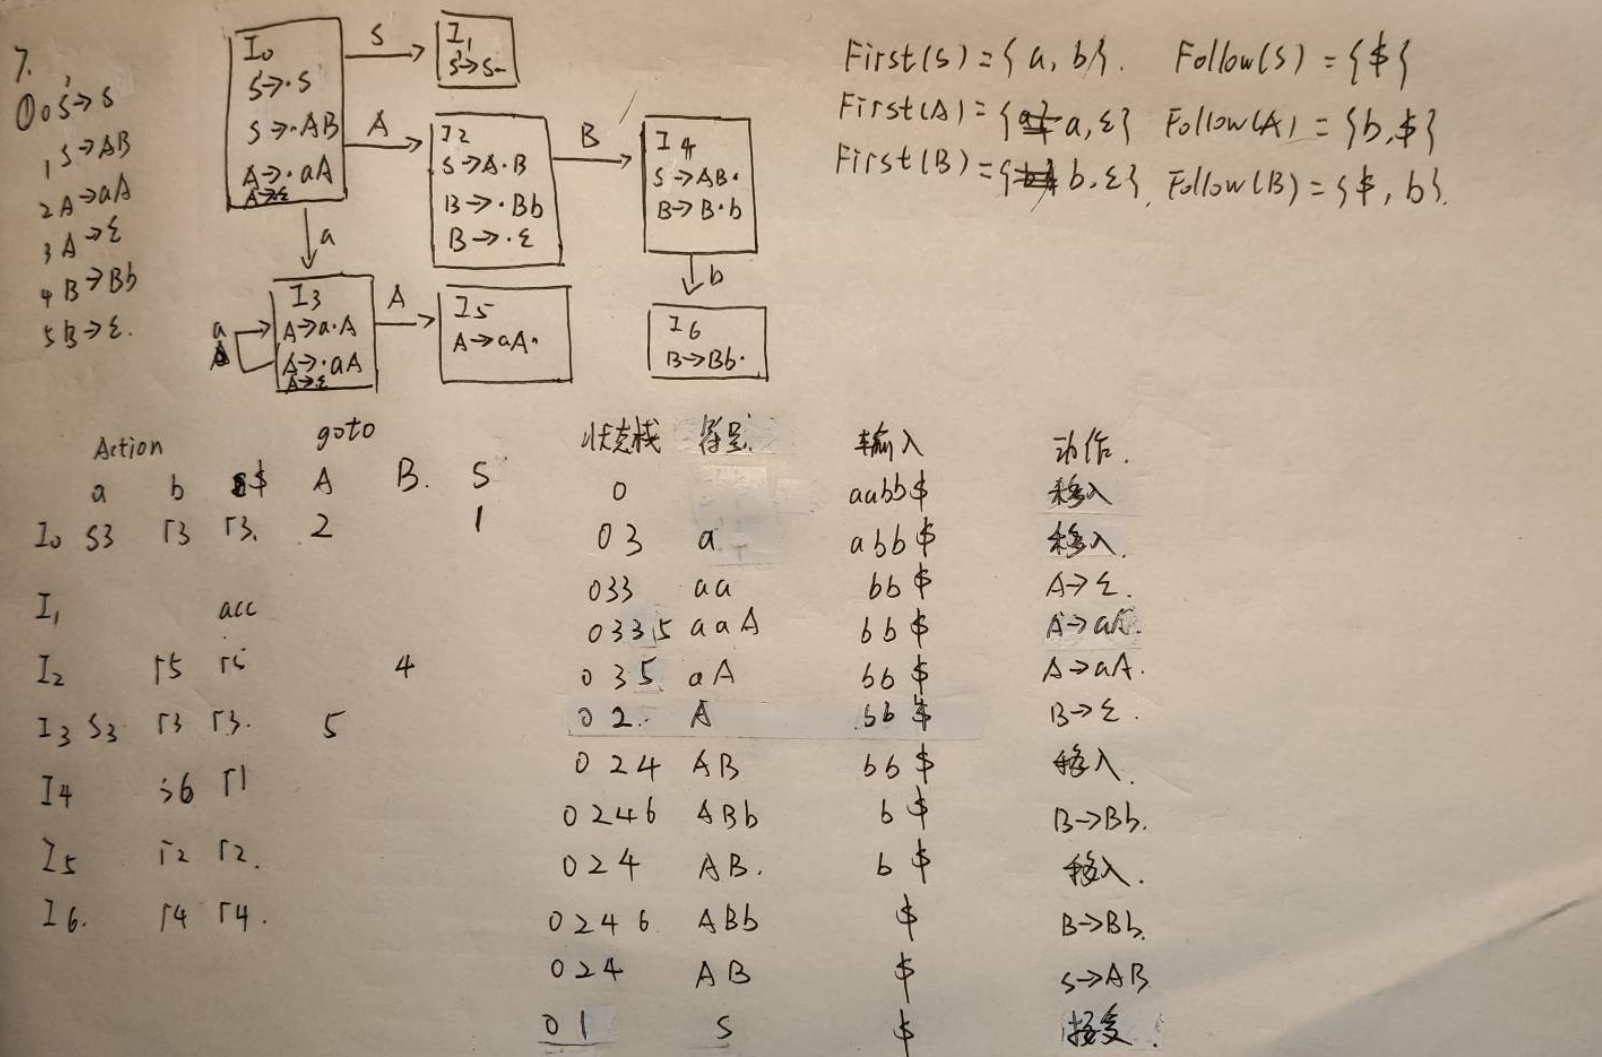 7.
① 0 S'→S
1 S→AB
2 A→aA
3 A→ε
4 B→Bb
5 B→ε.
I0
S'→·S
S→·AB
A→·aA
A→·ε
S
I1
S'→S·
A
I2
S→A·B
B→·Bb
B→·ε
B
I4
S→AB·
B→B·b
a
I3
A→a·A
A→·aA
A→·ε
a
A
I5
A→aA·
b
I6
B→Bb·
First(S)={a, b}. Follow(S)={$}
First(A)={a, ε} Follow(A)={b,$}
First(B)={b, ε}. Follow(B)={$, b}.
Action goto
a b $ A B. S
I0 S3 r3 r3. 2 1
I1 acc
I2 r5 r5 4
I3 S3 r3 r3. 5
I4 S6 r1
I5 r2 r2.
I6. r4 r4.
状态栈 符号 输入 动作.
0 aabb$ 移入
03 a abb$ 移入.
033 aa bb$ A→ε.
0335 aaA bb$ A→aA.
035 aA bb$ A→aA.
02. A bb$ B→ε.
024 AB bb$ 移入.
0246 ABb b$ B→Bb.
024 AB. b$ 移入.
0246 ABb $ B→Bb.
024 AB $ S→AB
01 S $ 接受.